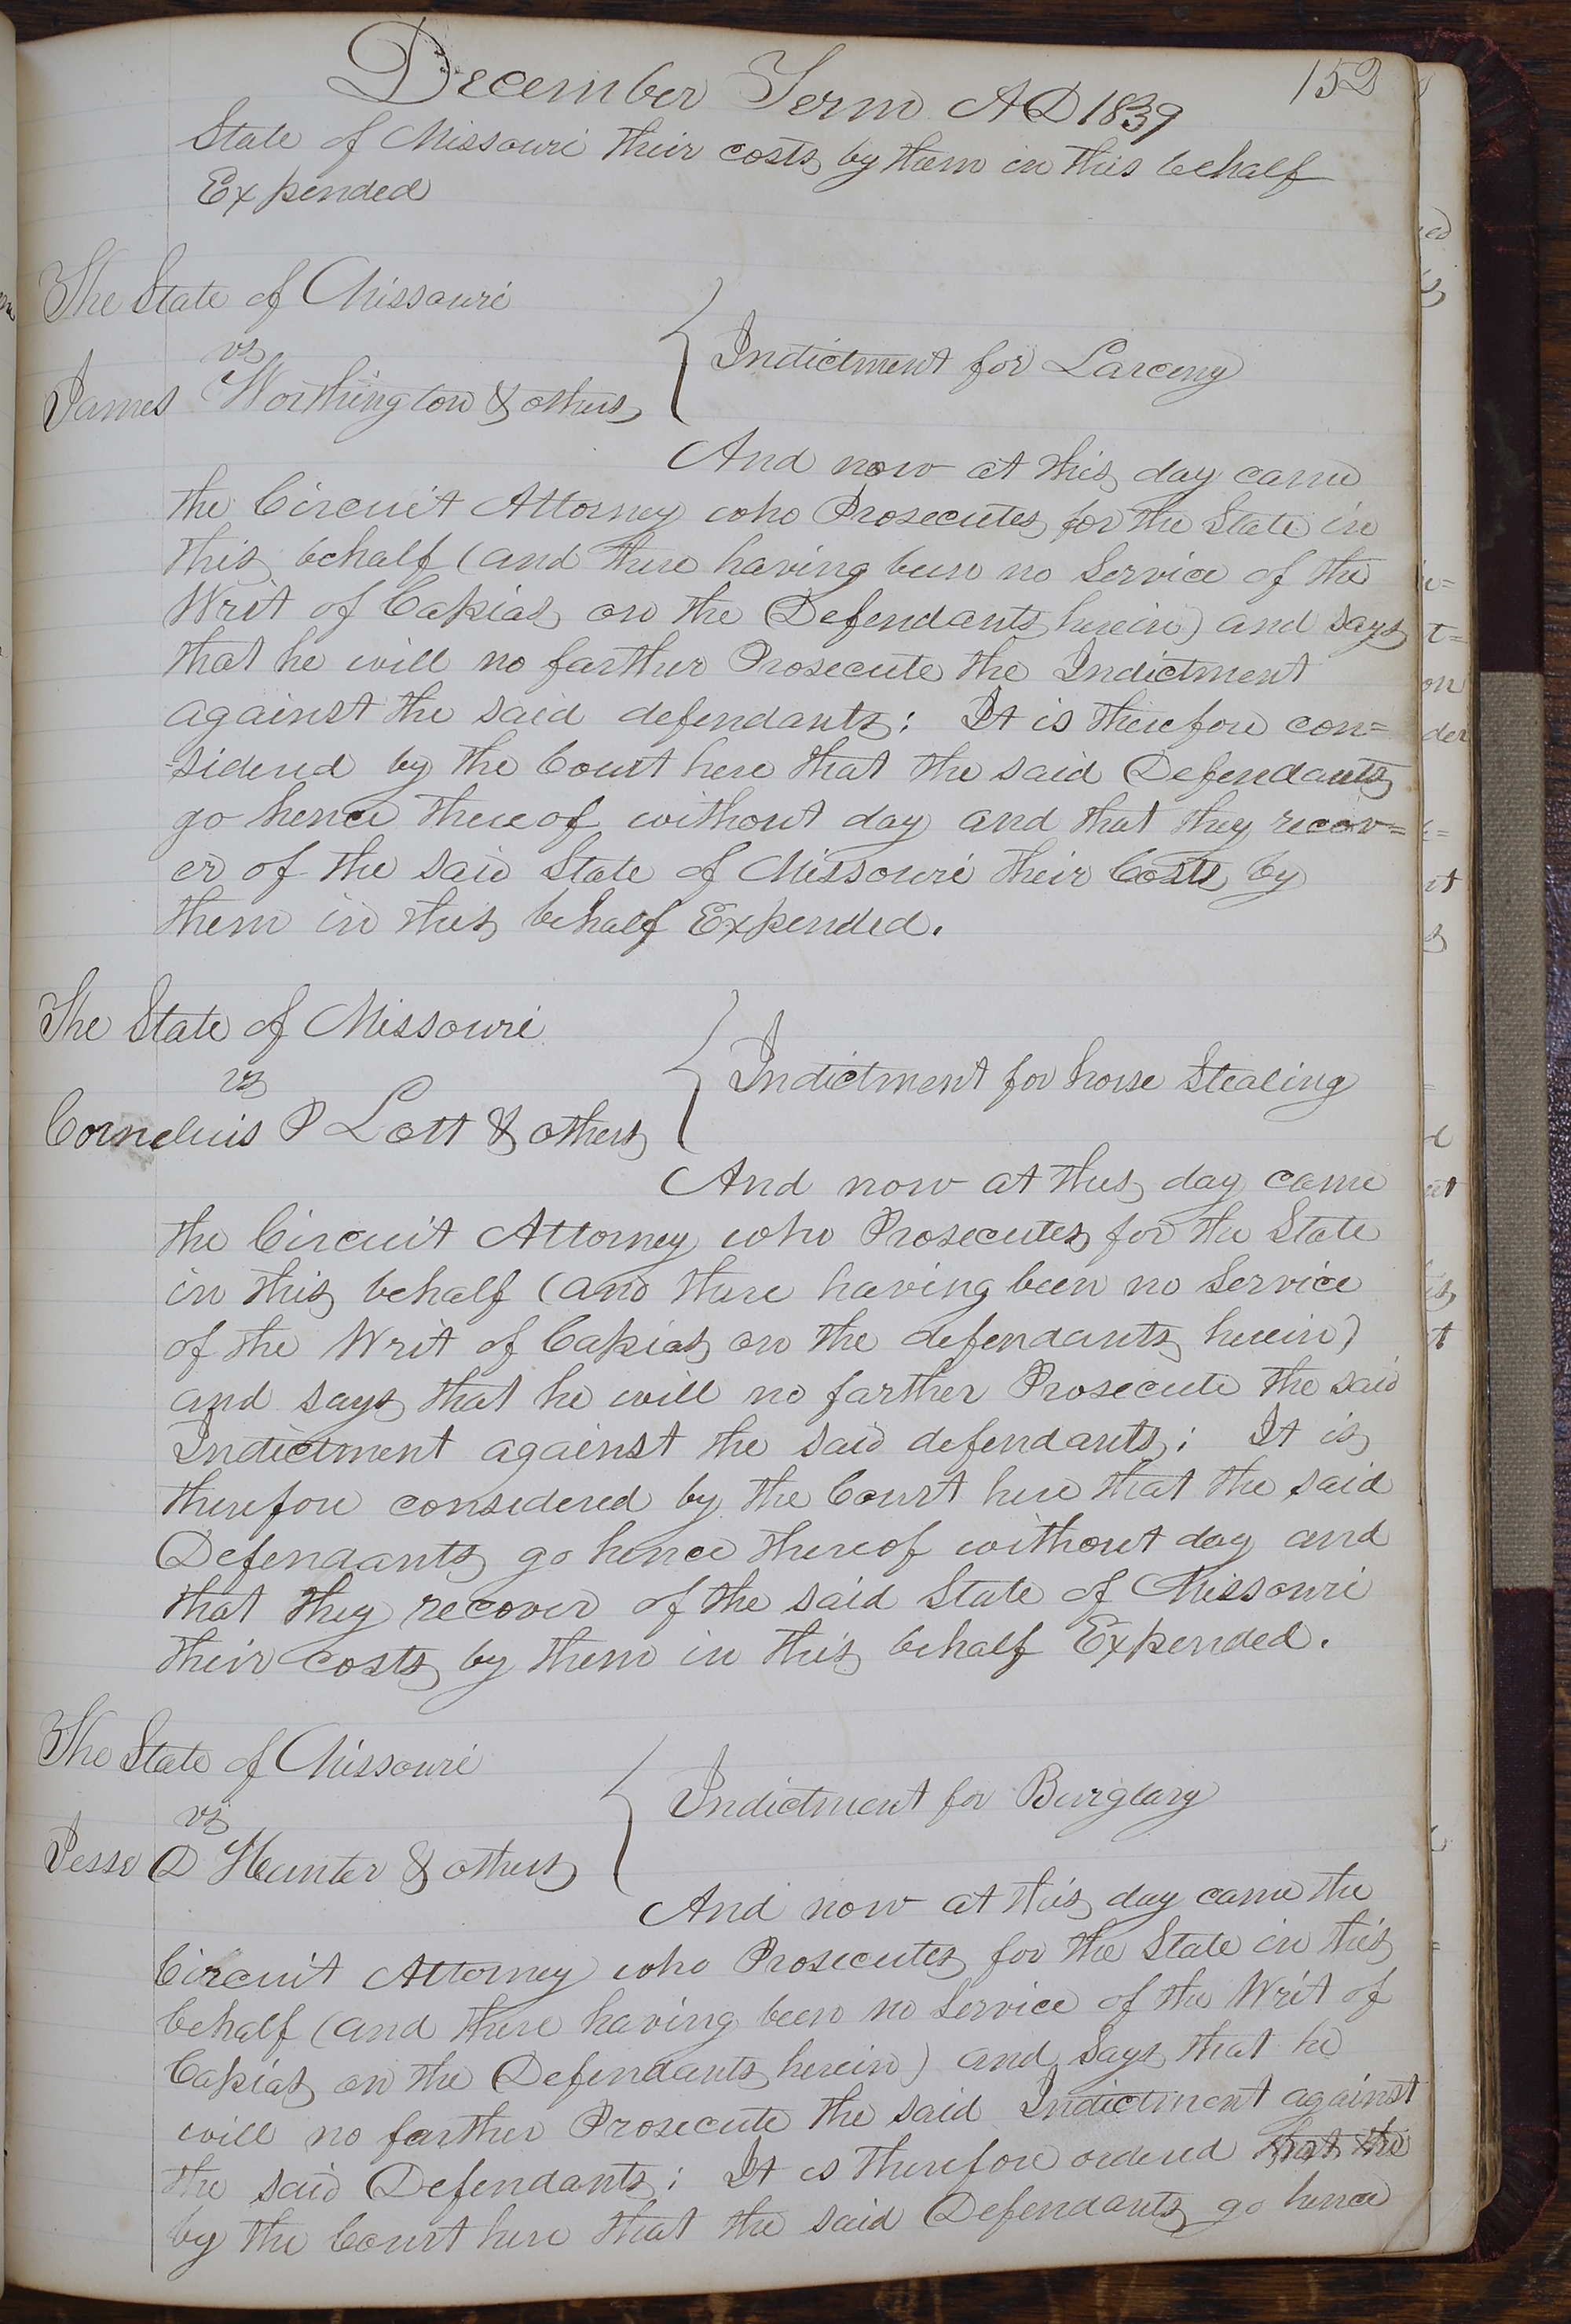 December Term AD 1839
152
State of Missouri their costs by them in this behalf
Expended
The State of Missouri
vs
James Worthington & others
Indictment for Larceny
And now at this day came
the Circuit Attorney who Prosecutes for the State in
this behalf (and there having been no service of the
Writ of Capias on the Defendants herein) and says
that he will no farther Prosecute the Indictment
against the said defendants; It is therefore con=
=sidered by the Court here that the said Defendants
go hence thereof without day and that they recov=
er of the said State of Missouri their Costs by
them in this behalf Expended.
The State of Missouri
vs
Cornelius P Lott & others
Indictment for horse Stealing
And now at this day came
the Circuit Attorney who Prosecutes for the State
in this behalf (and there having been no Service
of the Writ of Capias on the defendants herein)
and says that he will no farther Prosecute the said
Indictment against the said defendants; It is
therefore considered by the Court here that the said
Defendants go hence thereof without day and
that they recover of the said State of Missouri
their costs by them in this behalf Expended.
The State of Missouri
vs
Jesse D Hunter & others
Indictment for Burglary
And now at this day came the
Circuit Attorney who Prosecutes for the State in this
behalf (and there having been no Service of the Writ of
Capias on the Defendants herein) and says that he
will no farther Prosecute the said Indictment against
the said Defendants; It is therefore ordered that the
by the Court here that the said Defendants go hence